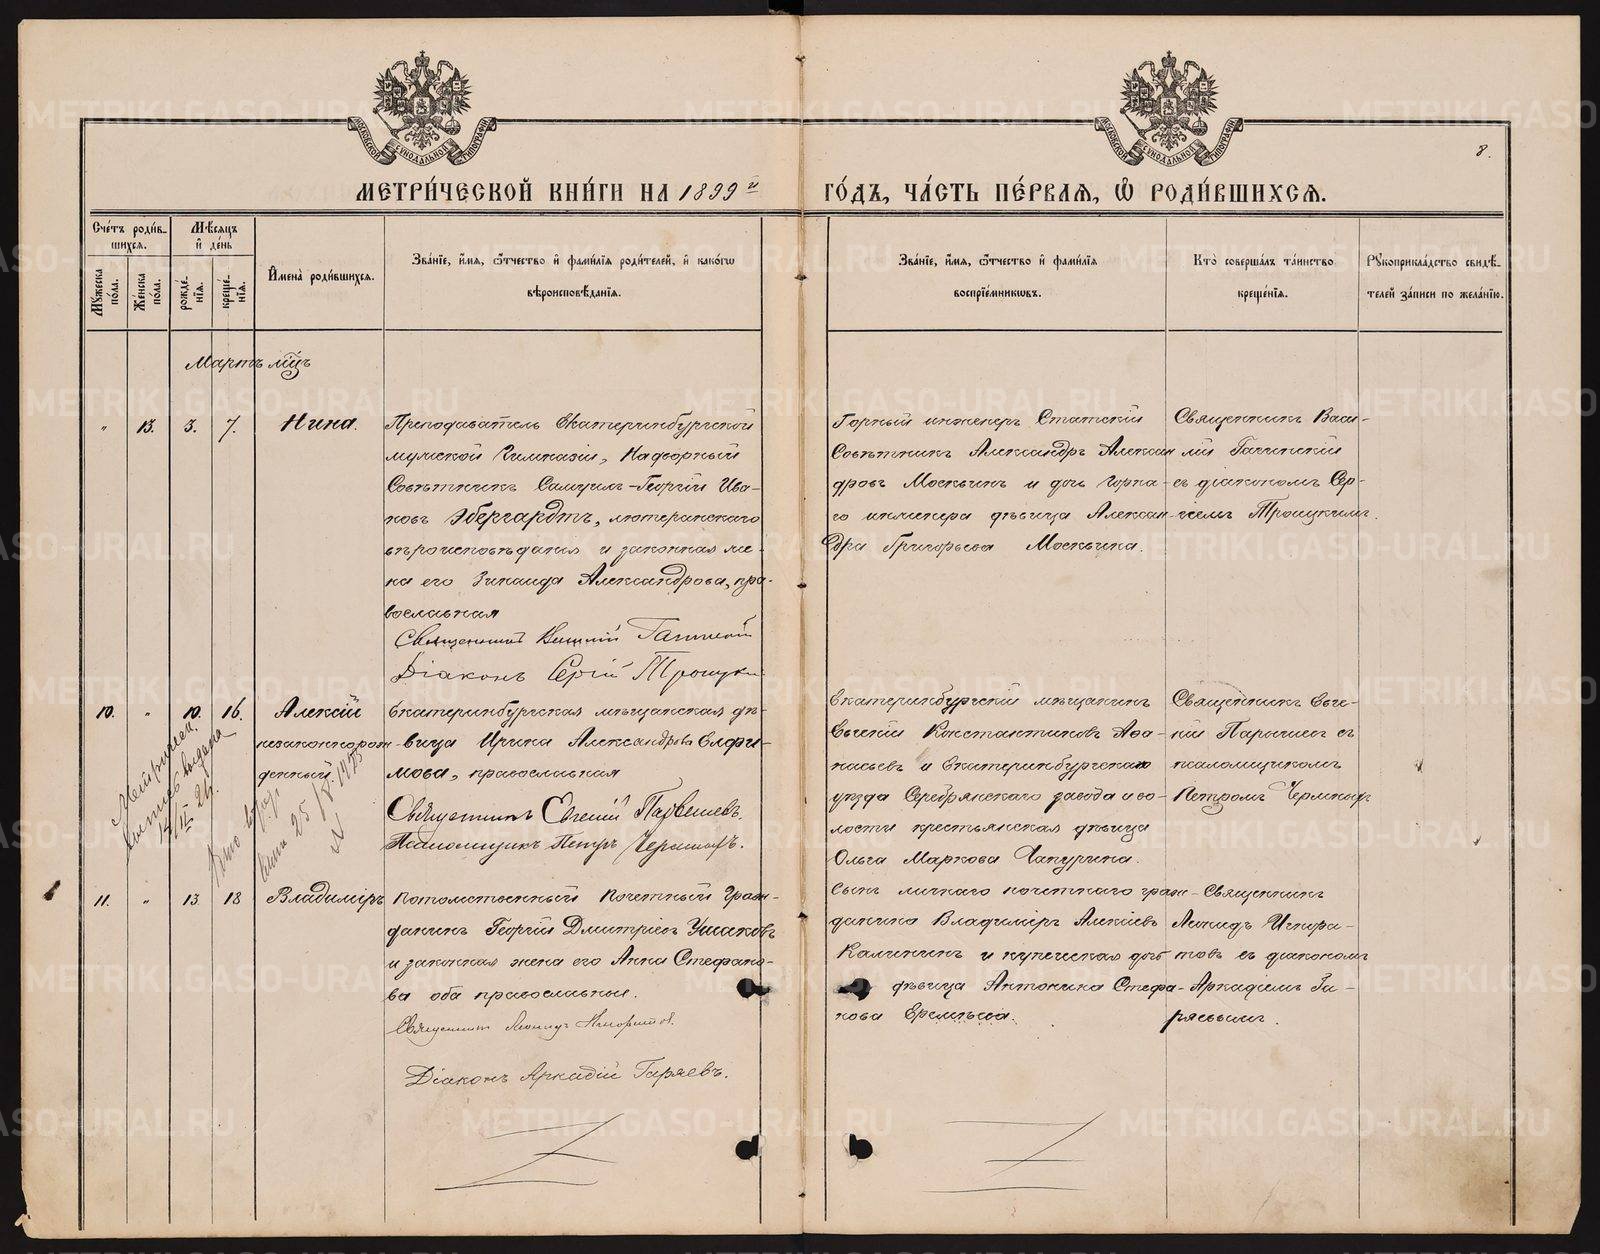 МЕТРИ́ЧЕСКОЙ КНИ́ГИ НА 1899й ГО́ДЪ, ЧА́СТЬ ПЕ́РВАѦ, Ѡ҃ РОДИ́ВШИХСѦ.
8.
Сче́тъ роди́в-
шихсѧ.
Мѣ́сѧцъ
и҆ де́нь
Мꙋ́жеска
по́ла.
Же́нска
по́ла.
рожде́-
нїѧ.
креще́-
нїѧ.
И҆мена̀ роди́вшихсѧ.
Зва́нїе, и҆́мѧ, ѻ҆́тчество и҆ фами́лїѧ роди́телей, и҆ како́гѡ
вѣроисповѣ́данїѧ.
Зва́нїе, и҆́мѧ, ѻ҆́тчество и҆ фами́лїѧ
воспрїе́мникѡвъ.
Кто̀ соверша́лъ та́инство
креще́нїѧ.
Рꙋкоприкла́дство свидѣ́-
телей за́писи по жела́нїю.
Мартъ мцъ
" 13. 3. 7. Нина.
Преподаватель Екатеринбургской
мужской Гимназіи, Надворный
Совѣтникъ Самуилъ-Георгій Ива-
новъ Эбергардтъ, лютеранскаго
вѣроисповѣданія и законная же-
на его Зинаида Александрова, пра-
вославная
Священникъ Василій Гагинскій
Діаконъ Сергій Троицкій
Горный инженеръ Статскій
Совѣтникъ Александръ Алексан
дровъ Москвинъ и дочь Горна-
го инженера дѣвица Алексан-
дра Григорьева Москвина.
Священникъ Васи-
лій Гагинскій
съ діакономъ Сер-
гіемъ Троицкимъ.
10. " 10. 16. Алексій
незаконнорож
денный
Екатеринбургская мѣщанская дѣ-
вица Ирина Александрова Елфи-
мова, православная
Священникъ Евгеній Парышевъ.
Псаломщикъ Петръ Чермныхъ.
Екатеринбургскій мѣщанинъ
Евгеній Константиновъ Афа-
насьевъ и Екатеринбургскаго
уѣзда Серебрянскаго завода и во-
лости крестьянская дѣвица
Ольга Маркова Чапурина.
Священникъ Евге-
ній Парышевъ съ
псаломщикомъ
Петромъ Чермныхъ
выдана
25/8 1925
11. " 13. 18 Владиміръ
Потомственный Почетный Граж-
данинъ Георгій Дмитріевъ Ушаковъ
и законная жена его Анна Стефано-
ва оба православные.
Священникъ Леонидъ Игноратовъ.
Діаконъ Аркадій Гаряевъ.
Сынъ личнаго почетнаго граж-
данина Владиміръ Алексіевъ
Калининъ и купеческая дочь
дѣвица Антонина Стефа-
нова Еремѣева.
Священникъ
Леонидъ Игнора-
товъ съ діакономъ
Аркадіемъ Га-
ряевымъ.
METRIKI.GASO-URAL.RU